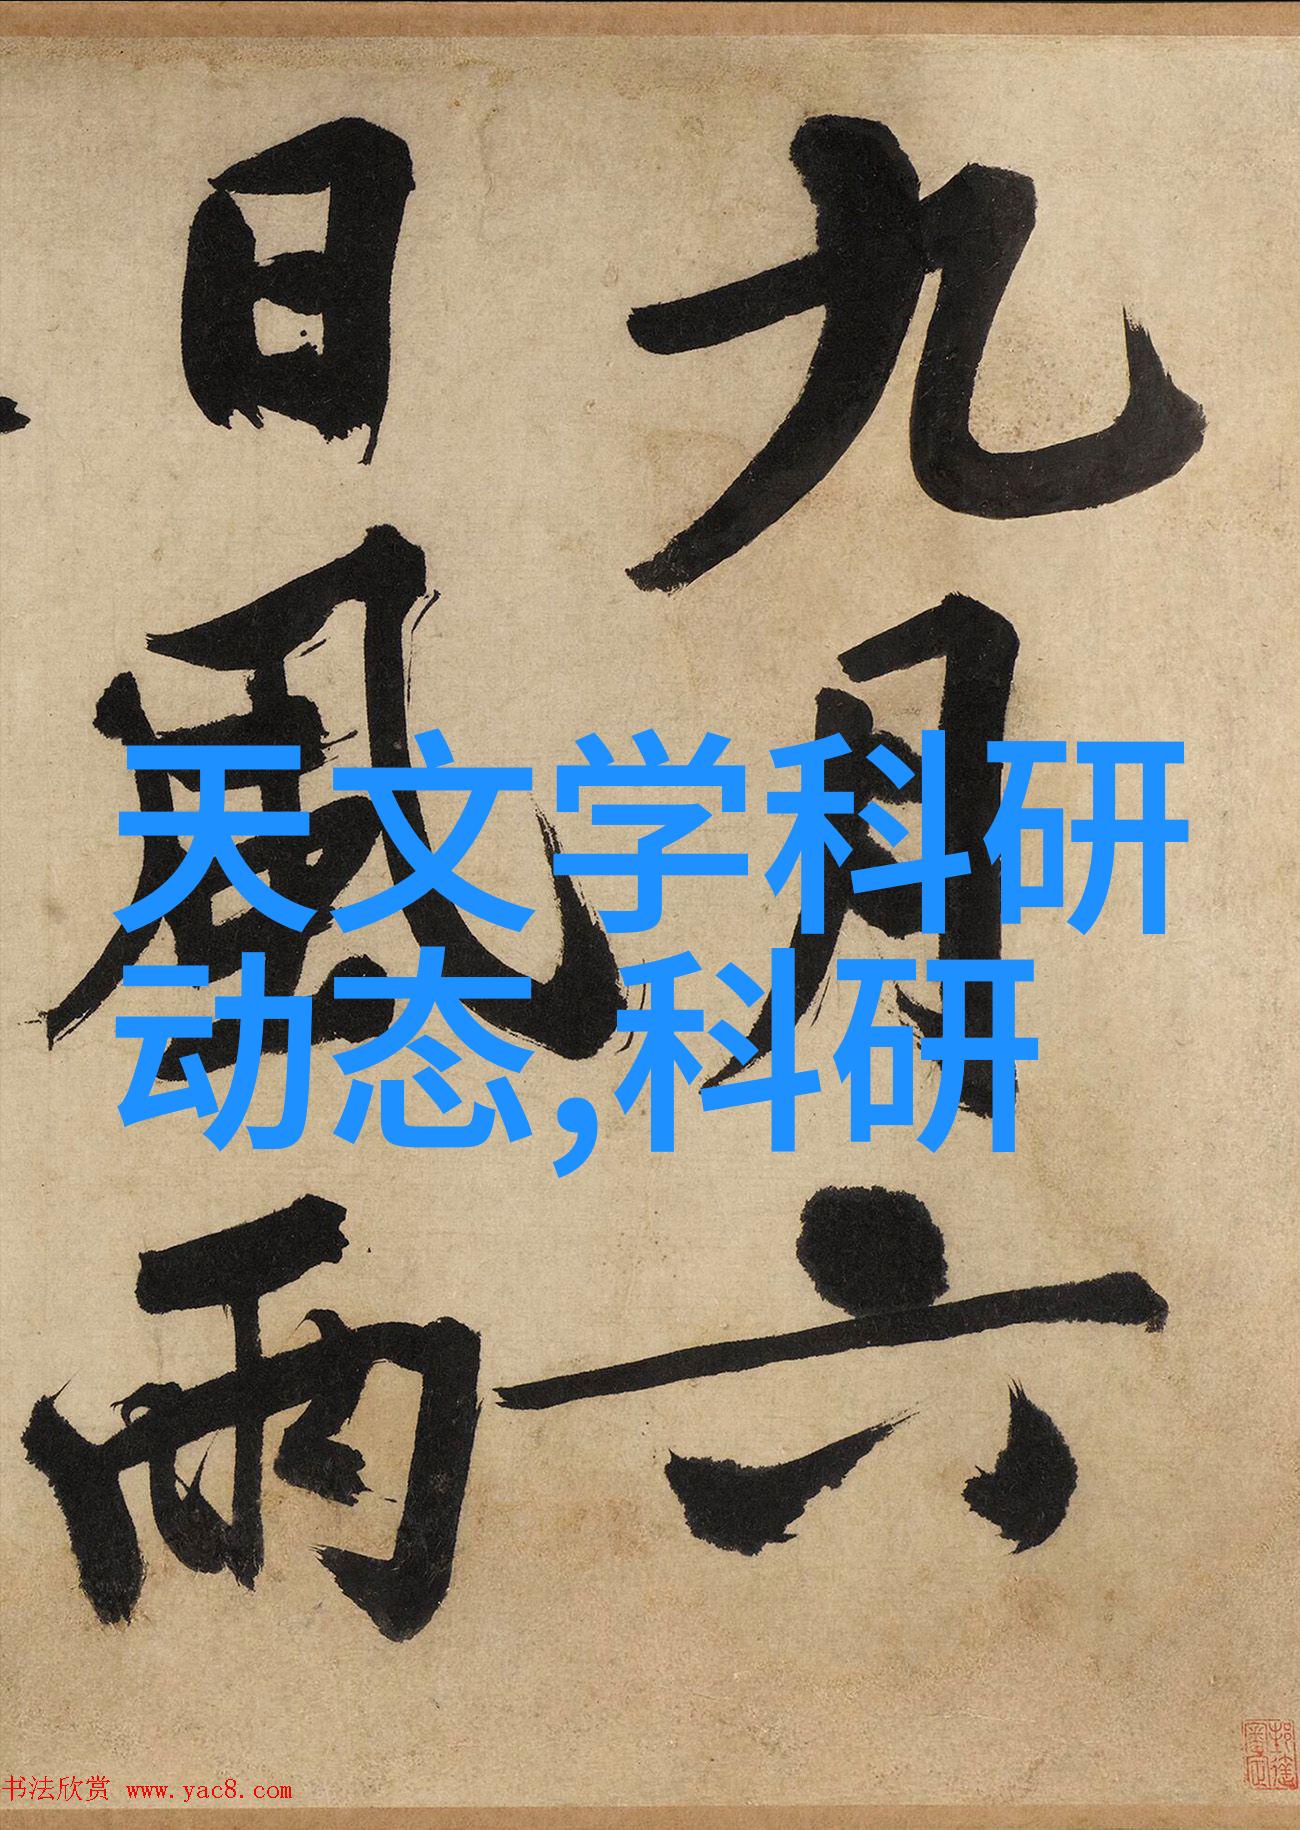 九月六
日風雨
天文学科研
动态,科研
书法欣赏 www.yac8.com